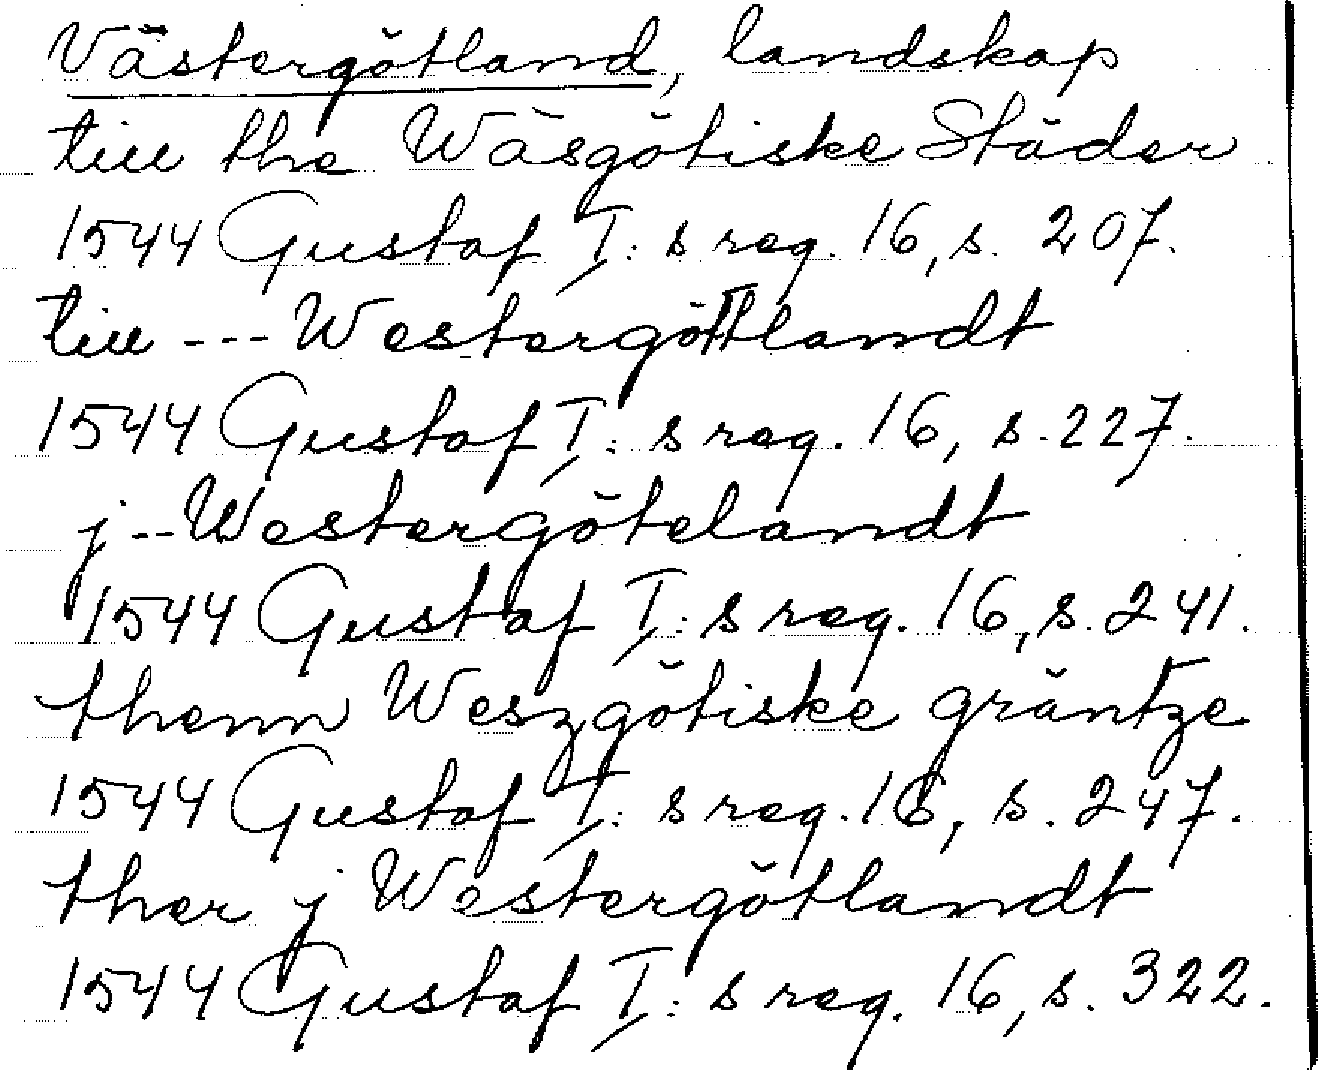 Västergötland, landskap
till the Wäsgötiske Städer
1544 Gustaf I: s reg. 16, s. 207.
till --- Westergöttlandt
1544 Gustaf I: s reg. 16, s. 227.
j -- Westergötelandt
1544 Gustaf I: s reg. 16, s. 241.
thenn Weszgötiske gräntze
1544 Gustaf I: s reg. 16, s. 247.
ther j Westergötlandt
1544 Gustaf I: s reg. 16, s. 322.